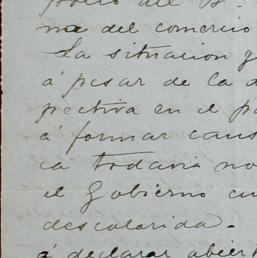 del
na del comercio
La situacion
á pesar de la
pectiva en el
á formar
ca todavia no
el Gobierno
descolorida.
á declarar